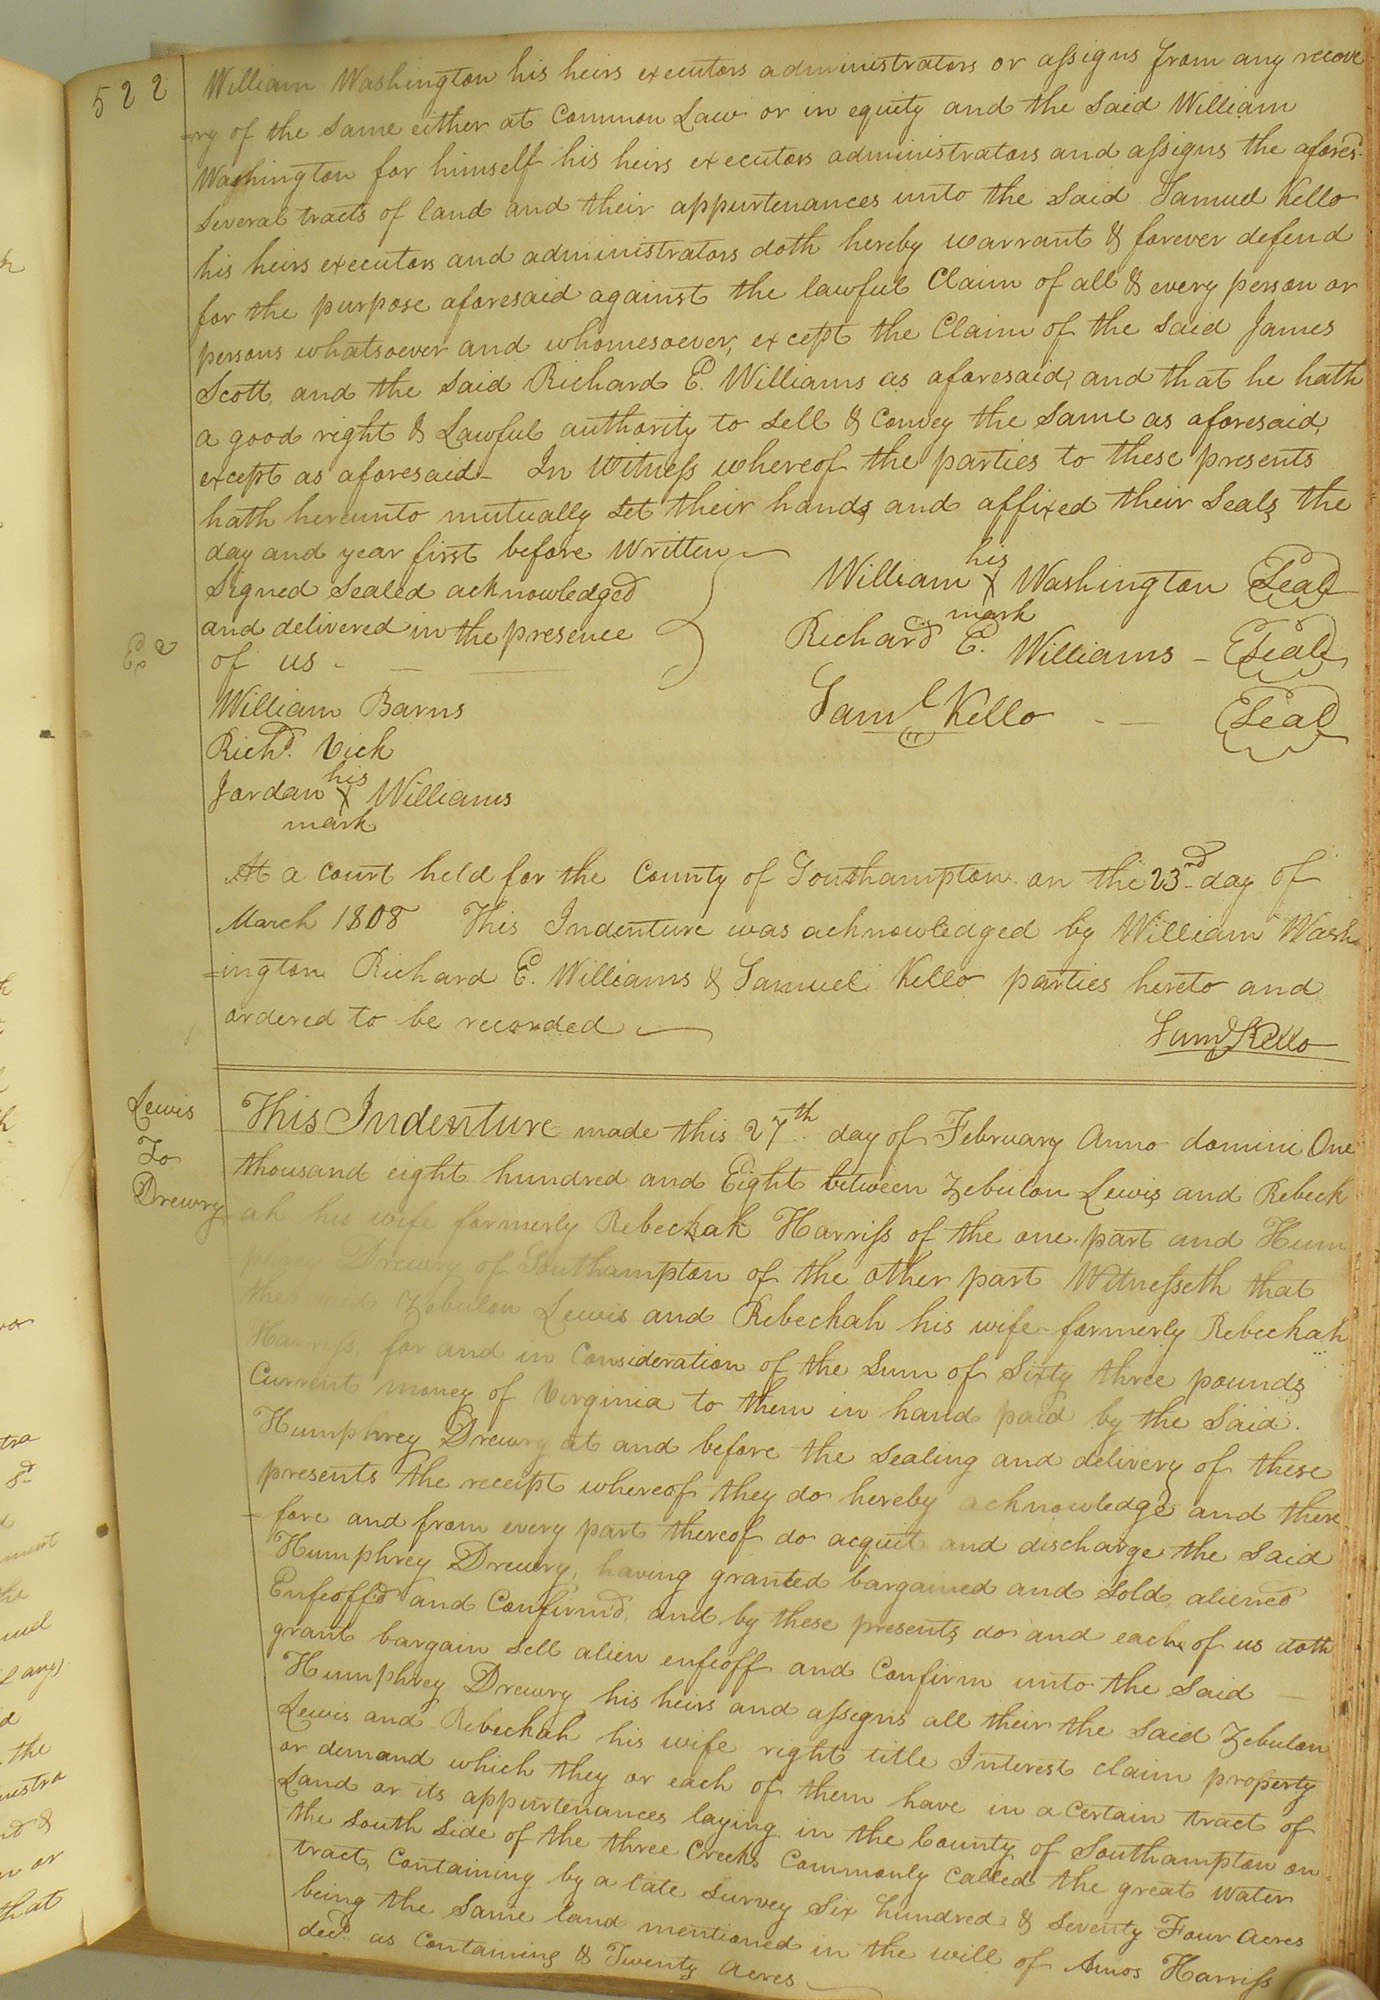 522
William Washington his heirs executors administrators or assigns from any recove
=ry of the same either at Common Law or in equity and the said William
Washington for himself his heirs executors administrators and assigns the afores.
several tracts of land and their appurtenances unto the said Samuel Kello
his heirs executors and administrators doth hereby warrant & forever defend
for the purpose aforesaid against the lawful Claim of all & every person or
persons whatsoever and whomesoever, except the Claim of the said James
Scott, and the said Richard E. Williams as aforesaid, and that he hath
a good right & Lawful authority to sell & Convey the same as aforesaid,
except as aforesaid - In Witness whereof the parties to these presents
hath hereunto mutually set their hands and affixed their Seals the
day and year first before Written
Signed Sealed acknowledged
and delivered in the presence
of us -
William Barns
Richd. Vick
his
Jordan X Williams
mark
his
William X Washington Seal
mark
Richard E. Williams - Seal
Saml Kello - - Seal
Exd
At a Court held for the County of Southampton on the 23rd day of
March 1808 This Indenture was acknowledged by William Wash
=ington Richard E. Williams & Samuel Kello parties hereto and
ordered to be recorded
Saml Kello
Lewis
To
Drewry
This Indenture made this 27th day of February Anno domini One
thousand eight hundred and Eight between Zebulon Lewis and Rebeck
ah his wife formerly Rebeckah Harriss of the one part and Hum
phrey Drewry of Southampton of the other part Witnesseth that
the said Zebulon Lewis and Rebeckah his wife formerly Rebeckah
Harriss, for and in Consideration of the Sum of Sixty three pounds
Current money of Virginia to them in hand paid by the said
Humphrey Drewry at and before the sealing and delivery of these
presents the receipt whereof they do hereby acknowledge and there
- fore and from every part thereof do acquit and discharge the said
Humphrey Drewry, having granted bargained and sold, aliened
Enfeoff'd and Confirm'd, and by these presents do and each of us doth
grant bargain sell alien enfeoff and Confirm unto the said
Humphrey Drewry his heirs and assigns all their the said Zebulon
Lewis and Rebeckah his wife right title Interest claim property
or demand which they or each of them have in a Certain tract of
Land or its appurtenances laying in the County of Southampton on
the South side of the three Creeks Commonly Called the great water
tract, Containing by a late survey Six hundred & Seventy Four Acres
being the same land mentioned in the will of Amos Harriss
decd. as Containing & Twenty Acres